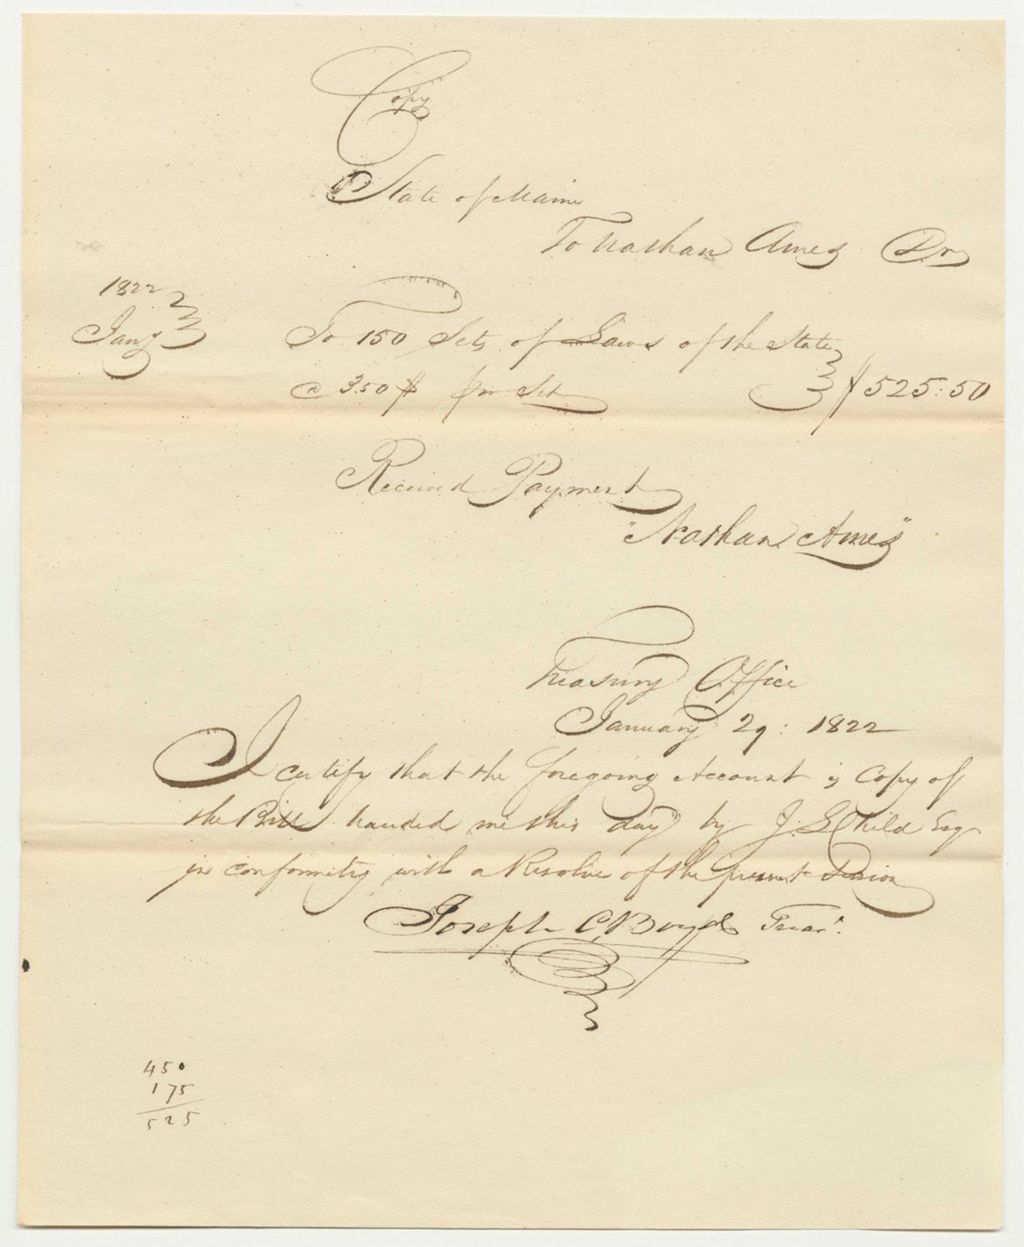 Copy
State of Maine
To Nathan Ames Dr
1822
Jany
To 150 Sets of Laws of the State
@ 3.50 $ per Set $525:50
Received Payment
"Nathan Ames"
Treasury Office
January 29: 1822
I certify that the foregoing Account is Copy of
the Bill handed me this day by J. L. Child Esq
in conformity with a Resolve of the present Session
Joseph C. Boyd Treasr.
450
175
525